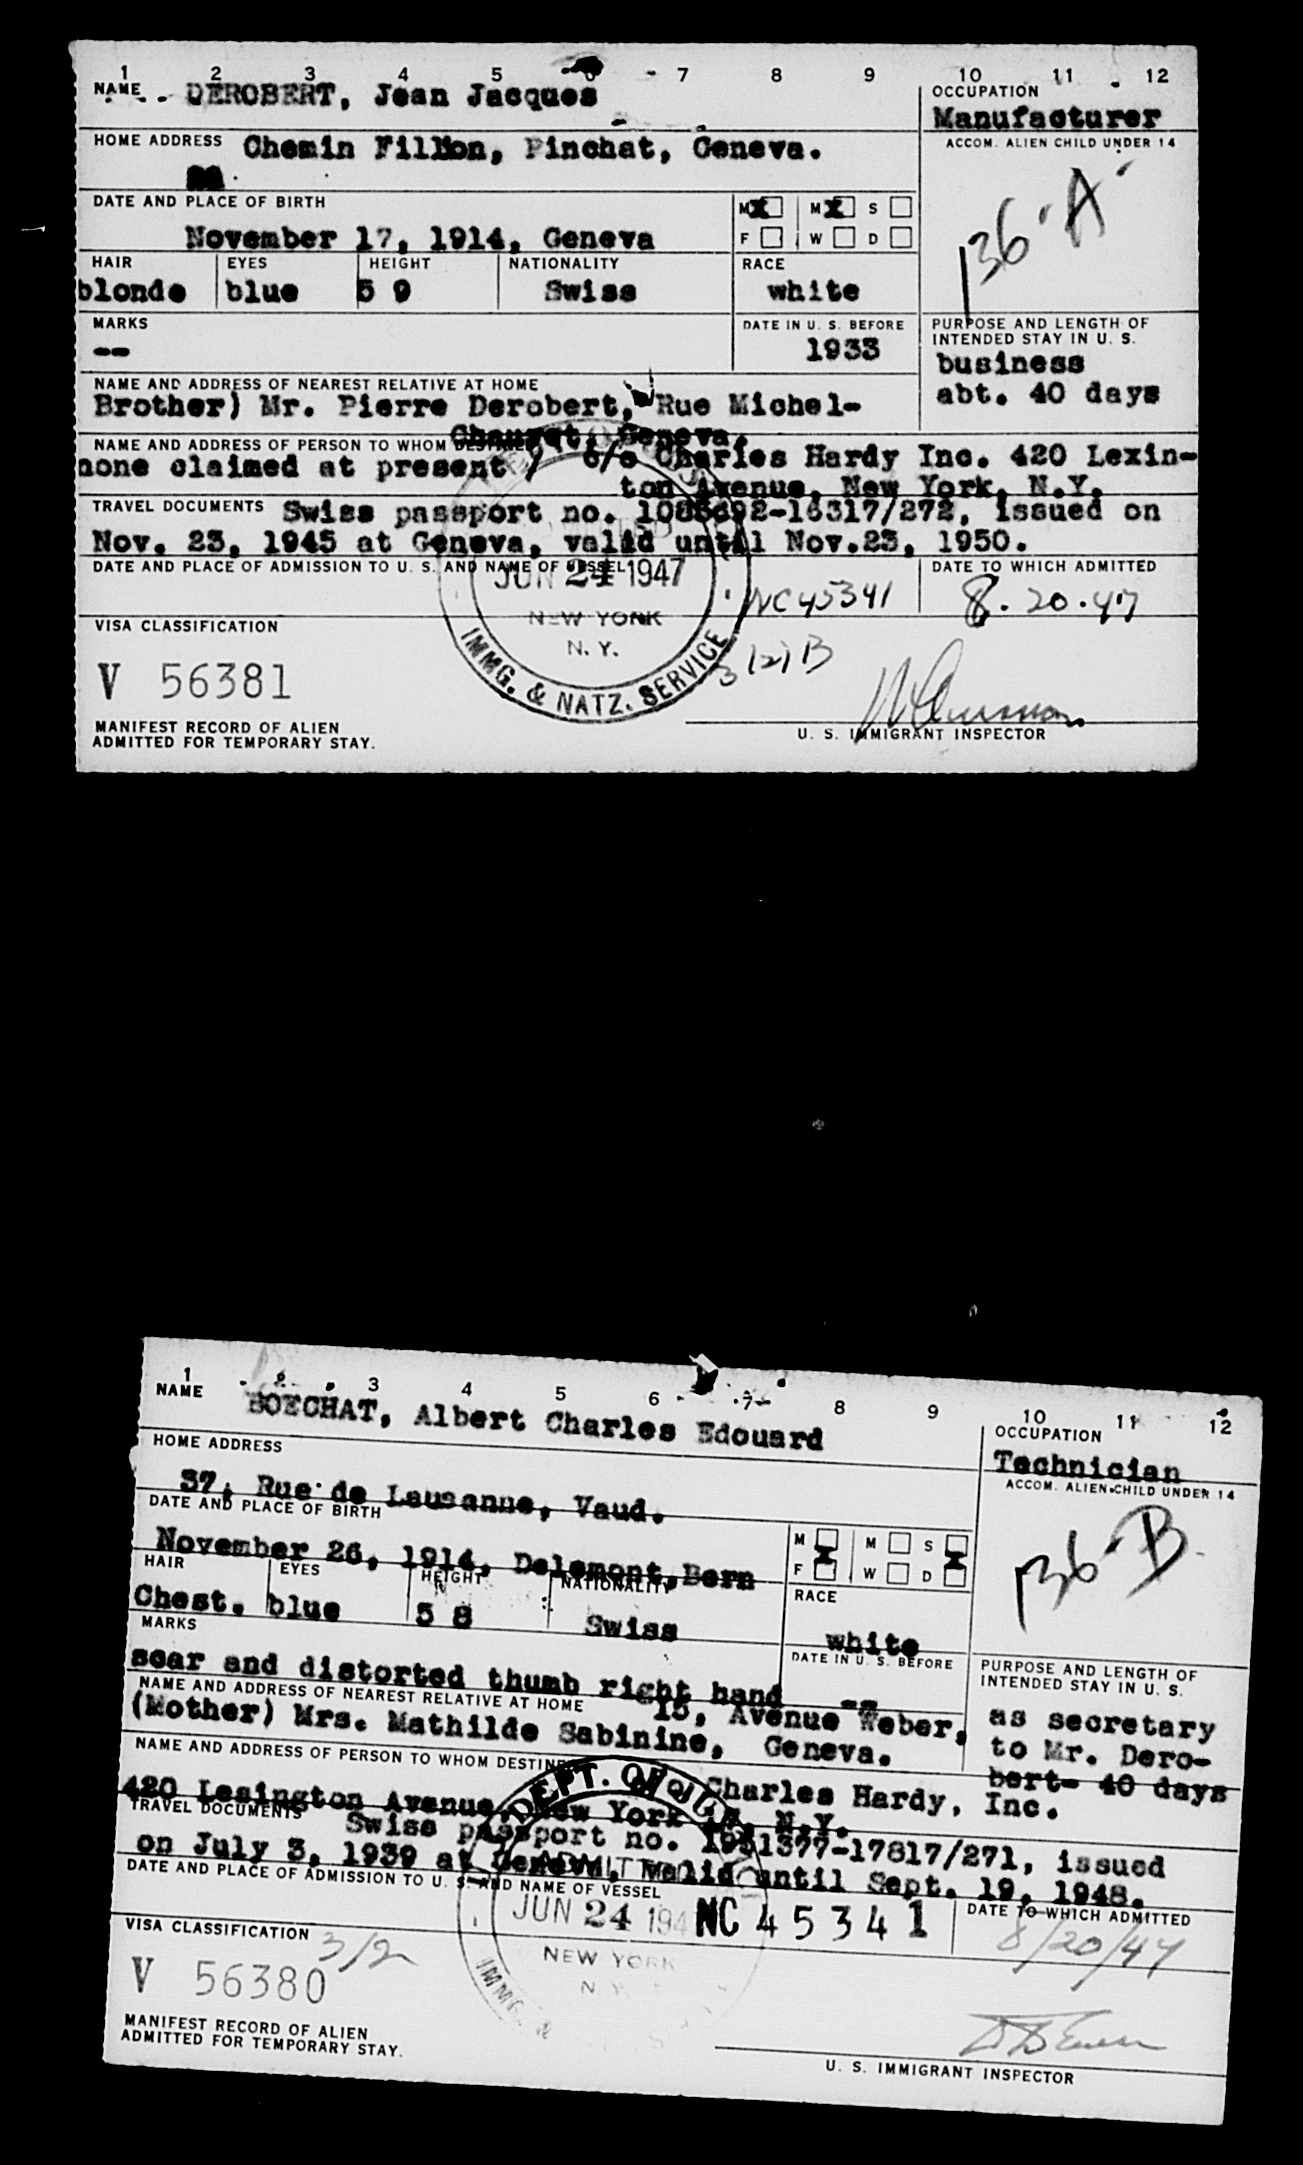 1 2 3 4 5 6 7 8 9 10 11 12
NAME DEROBERT, Jean Jacques
OCCUPATION
Manufacturer
HOME ADDRESS Chemin Fillion, Pinchat, Geneva.
ACCOM. ALIEN CHILD UNDER 14
136-A
DATE AND PLACE OF BIRTH
November 17, 1914, Geneva
M X M X S
F W D
HAIR EYES HEIGHT NATIONALITY RACE
blonde blue 5 9 Swiss white
MARKS DATE IN U. S. BEFORE
-- 1933
PURPOSE AND LENGTH OF
INTENDED STAY IN U. S.
business
abt. 40 days
NAME AND ADDRESS OF NEAREST RELATIVE AT HOME
Brother) Mr. Pierre Derobert, Rue Michel-
Chauvet, Geneva.
NAME AND ADDRESS OF PERSON TO WHOM DESTINED
none claimed at present / c/o Charles Hardy Inc. 420 Lexin-
ton Avenue, New York, N.Y.
TRAVEL DOCUMENTS Swiss passport no. -16317/272, issued on
Nov. 23, 1945 at Geneva, valid until Nov.23, 1950.
DATE AND PLACE OF ADMISSION TO U. S. AND NAME OF VESSEL DATE TO WHICH ADMITTED
JUN 24 1947 NC 45341 8.20.47
NEW YORK
N. Y.
IMMG. & NATZ. SERVICE
VISA CLASSIFICATION
V 56381
MANIFEST RECORD OF ALIEN
ADMITTED FOR TEMPORARY STAY.
U. S. IMMIGRANT INSPECTOR
1 2 3 4 5 6 7 8 9 10 11 12
NAME BOECHAT, Albert Charles Edouard
OCCUPATION
Technician
HOME ADDRESS
37, Rue de Lausanne, Vaud.
ACCOM. ALIEN CHILD UNDER 14
136-B
DATE AND PLACE OF BIRTH
November 26, 1914, Delemont, Bern
M X M S X
F W D
HAIR EYES HEIGHT NATIONALITY RACE
Chest. blue 5 8 Swiss white
MARKS DATE IN U. S. BEFORE
scar and distorted thumb right hand --
PURPOSE AND LENGTH OF
INTENDED STAY IN U. S.
as secretary
to Mr. Dero-
bert- 40 days
NAME AND ADDRESS OF NEAREST RELATIVE AT HOME 15, Avenue Weber,
(Mother) Mrs. Mathilde Sabinine, Geneva.
NAME AND ADDRESS OF PERSON TO WHOM DESTINED Charles Hardy, Inc.
420 Lesington Avenue, New York N.Y.
TRAVEL DOCUMENTS Swiss passport no. 1951377-17817/271, issued
on July 3, 1939 at Geneva, valid until Sept. 19, 1948.
DATE AND PLACE OF ADMISSION TO U. S. AND NAME OF VESSEL DATE TO WHICH ADMITTED
DEPT. OF
ADMITTED
JUN 24 194 NC 45341 8/20/47
NEW YORK
N. Y.
IMMG. &
VISA CLASSIFICATION 3/2
V 56380
MANIFEST RECORD OF ALIEN
ADMITTED FOR TEMPORARY STAY.
U. S. IMMIGRANT INSPECTOR